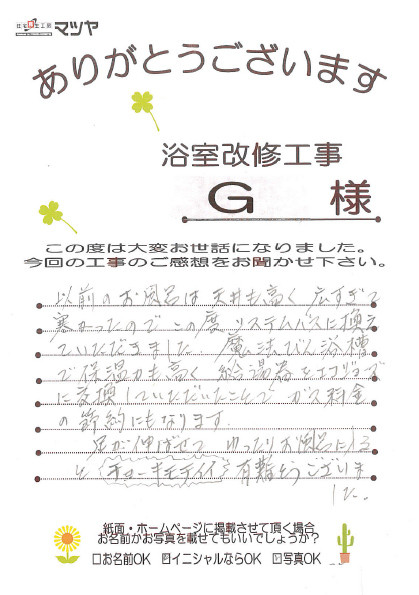 住宅再生工房 マツヤ
ありがとうございます
浴室改修工事
G 様
この度は大変お世話になりました。
今回の工事のご感想をお聞かせ下さい。
以前のお風呂は天井も高く 広すぎて
寒かったので この度 システムバスに換え
ていただきました。魔法びん浴槽
で保温力も高く 給湯器をエコジョーズ
に交換していただいたことで ガス料金
の節約にもなります。
足が伸ばせて ゆったりお風呂に入る
と チョーキモチイイ 有難うございま
した。
紙面・ホームページに掲載させて頂く場合
お名前かお写真を載せてもいいでしょうか？
□お名前OK ☑イニシャルならOK ☑写真OK